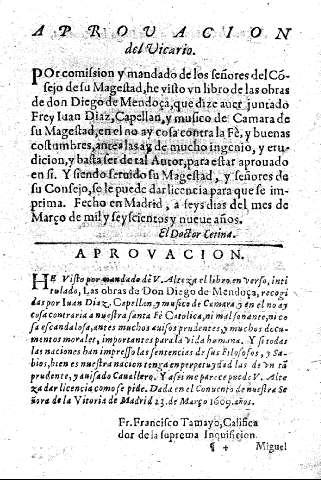 APROVACION
del Vicario.
POr comission y mandado de los señores del Cõ-
sejo de su Magestad, he visto vn libro de las obras
de don Diego de Mendoça, que dize auer juntado
Frey Iuan Diaz, Capellan, y musico de Camara de
su Magestad, en el no ay cosa contra la Fè, y buenas
costumbres, antes las ay de mucho ingenio, y eru-
dicion, y basta ser de tal Autor, para estar aprouado
en si. Y siendo seruido su Magestad, y señores de
su Consejo, se le puede dar licencia para que se im-
prima. Fecho en Madrid, a seys dias del mes de
Março de mil y seyscientos y nueue años.
El Doctor Cetina.
APROVACION.
HE Visto por mandado de V. Alteza el libro en verso, inti
tulado, Las obras de Don Diego de Mendoça, recogi
das por Iuan Diaz, Capellan, y musico de Camara, y en el no ay
cosa contraria a nuestra santa Fè Catolica, ni mal sonante, ni co
sa escandalosa, antes muchos auisos prudentes, y muchos docu-
mentos morales, importantes para la vida humana. Y si todas
las naciones han impresso las sentencias de sus Filosofos, y Sa-
bios, bien es nuestra nacion tenga en perpetuydad las de vn tã
prudente, y auisado Cauallero. Y assi me parece puede V. Alte
za dar licencia como se pide. Dada en el Conuento de nuestra Se
ñora de la Vitoria de Madrid 23. de Março 1609. años.
Fr. Francisco Tamayo, Califica
dor de la suprema Inquisicion.
¶ 4 Miguel